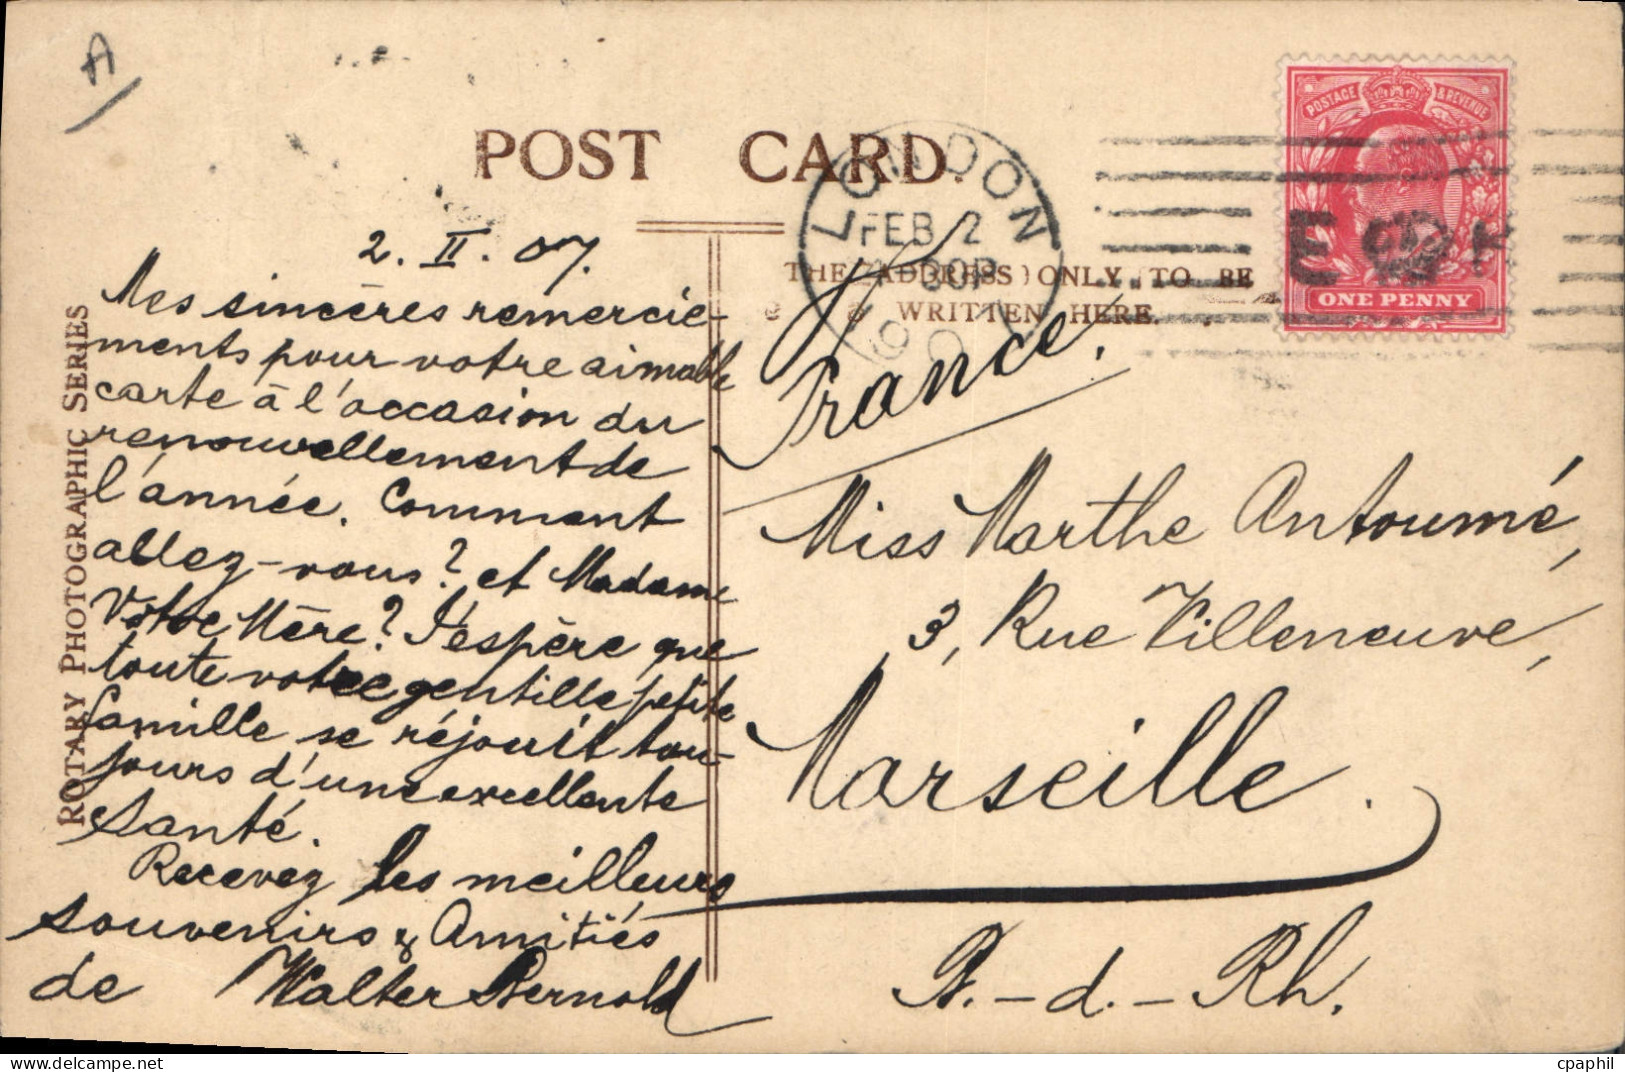 A
POST CARD.
LONDON
FEB 2
07
POSTAGE & REVENUE
ONE PENNY
THE (ADDRESS) ONLY TO BE
WRITTEN HERE.
ROTARY PHOTOGRAPHIC SERIES
2. II. 07.
Mes sincères remercie-
ments pour votre aimable
carte à l'occasion du
renouvellement de
l'année. Comment
allez-vous? et Madame
Votre Mère? J'espère que
toute votre gentille petite
famille se réjouit tou-
jours d'une excellente
santé.
Recevez les meilleurs
souvenirs & Amitiés
de Walter Bernold
France.
Miss Marthe Antoumé,
3, Rue Villeneuve,
Marseille.
B.-d.-Rh.
cpaphil